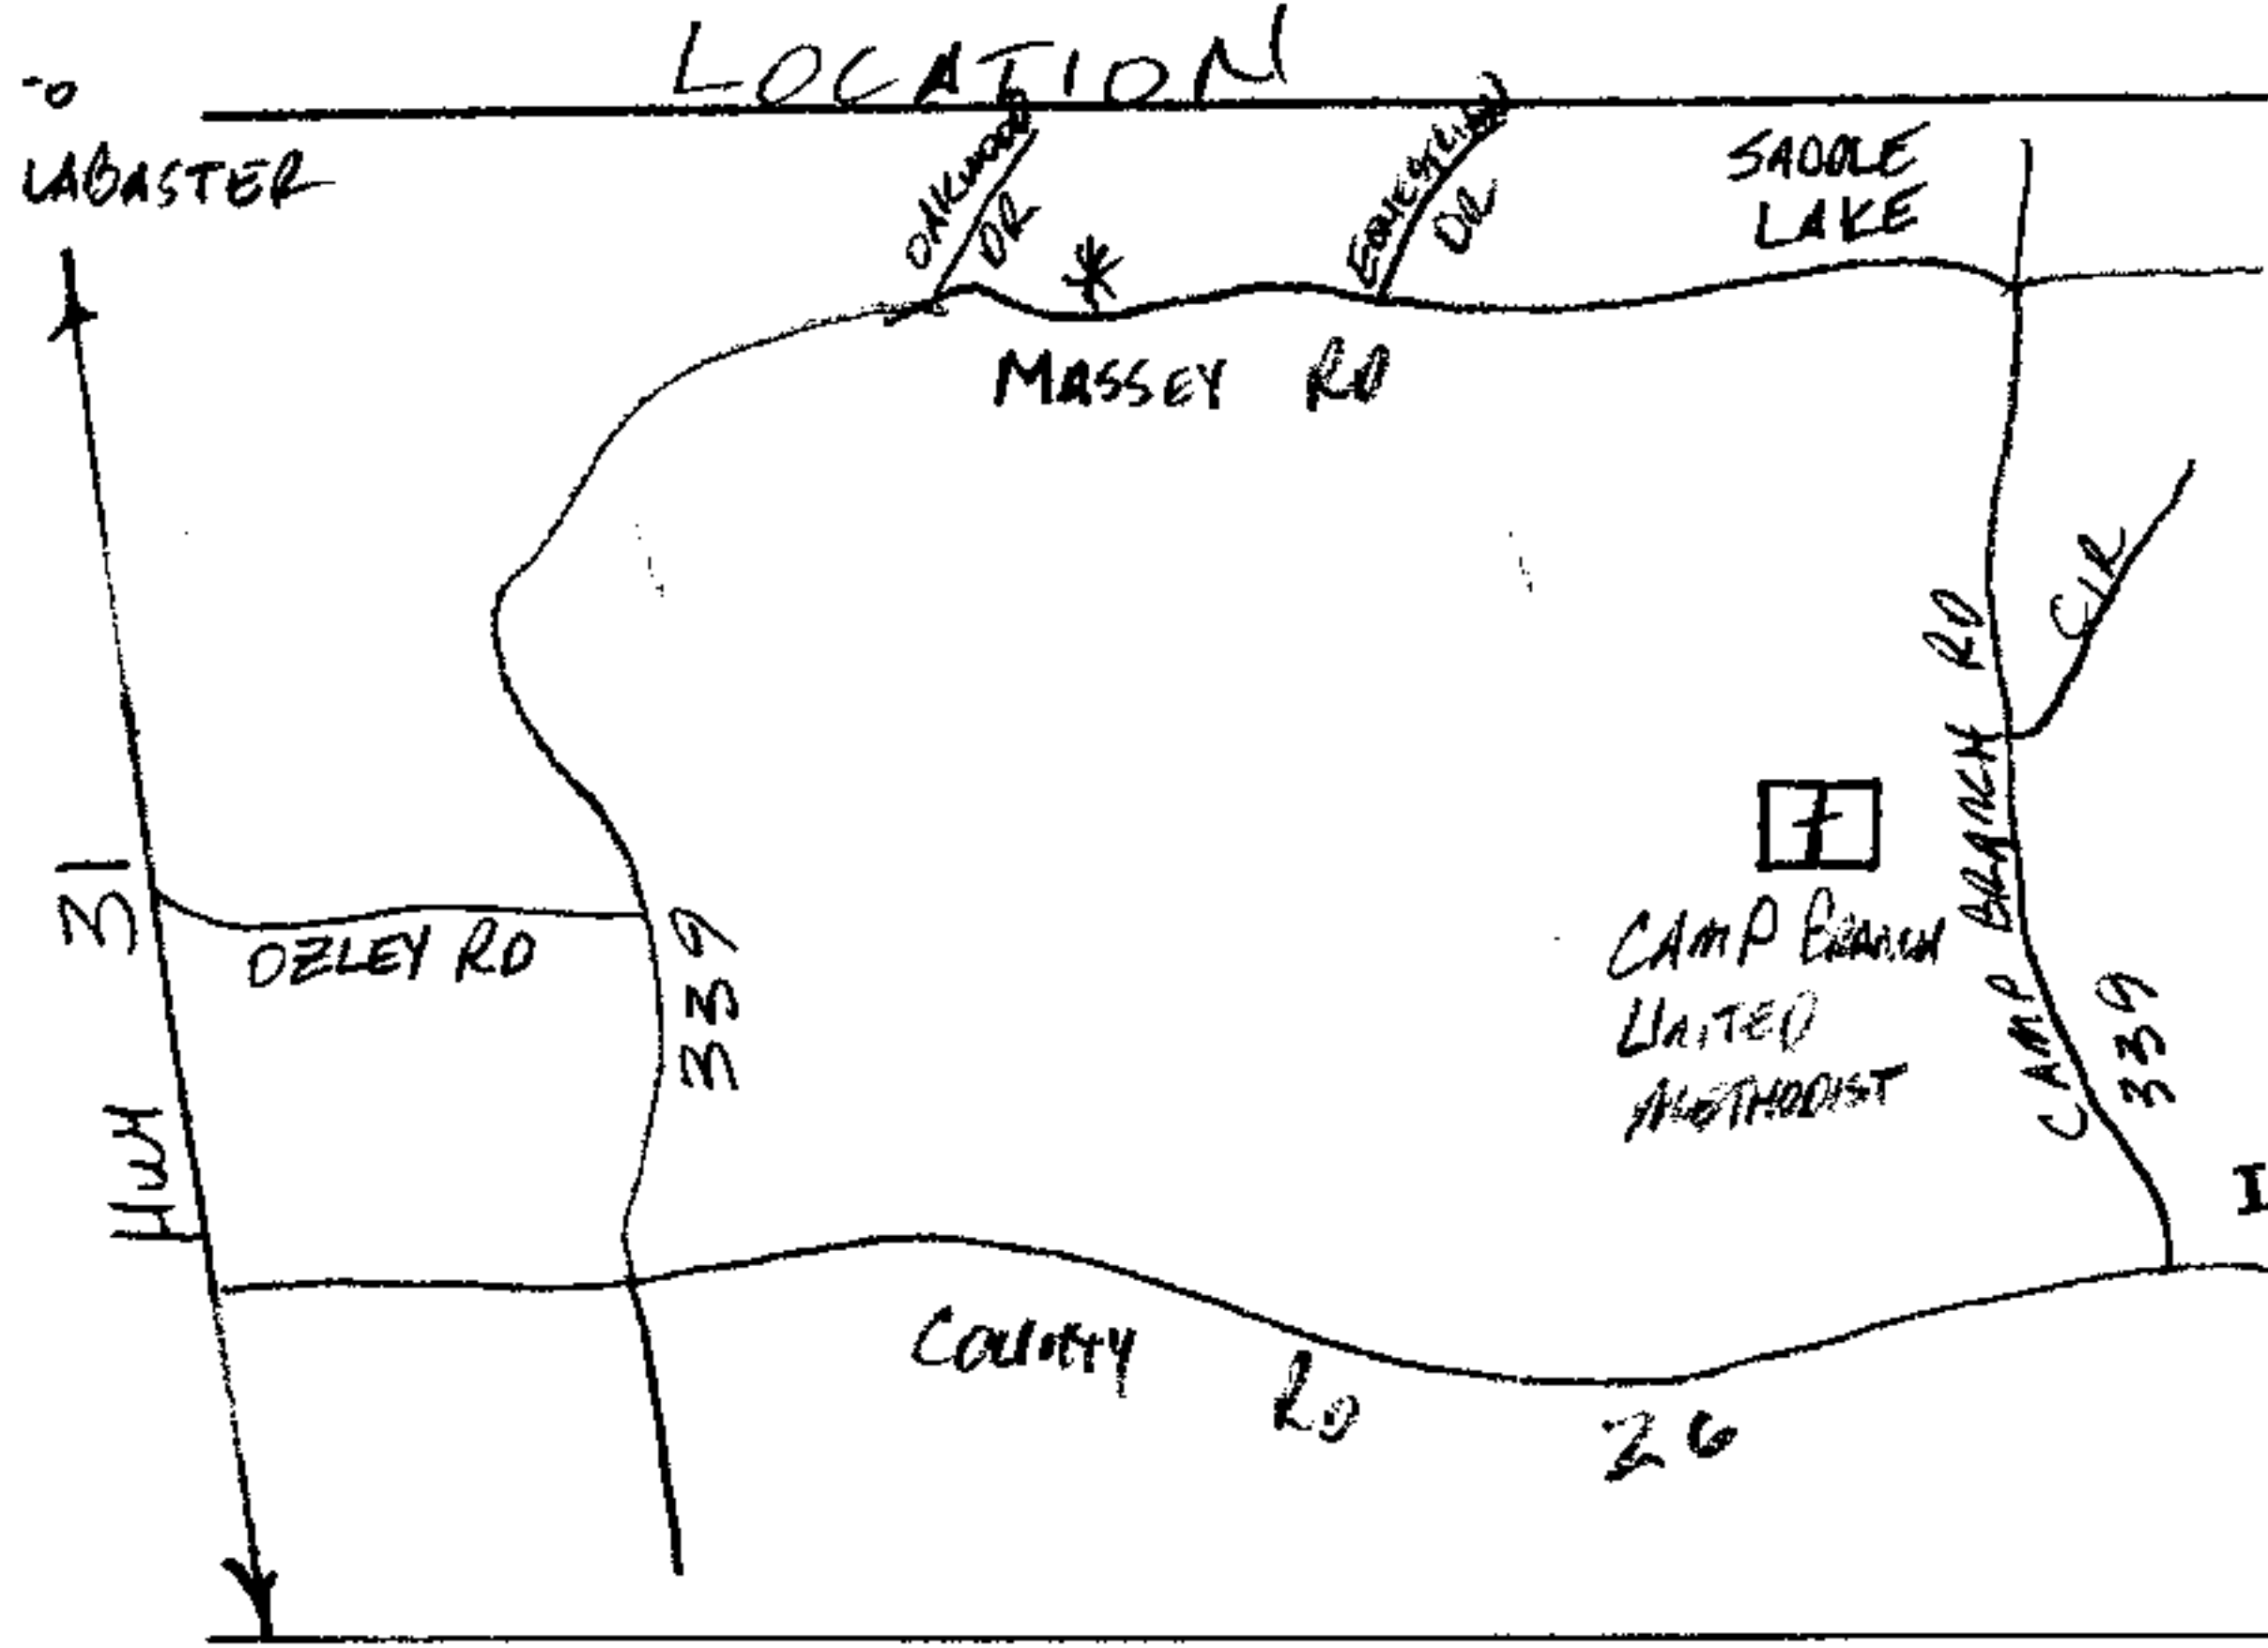 LOCATION
TO
LABASTER
OAKWOOD
DR
DR
SADDLE
LAKE
MASSEY RD
CIR
CAMP BRANCH RD
339
31
HWY
OZLEY RD
339
CAMP BRANCH
UNITED
METHODIST
COUNTY
RD
26